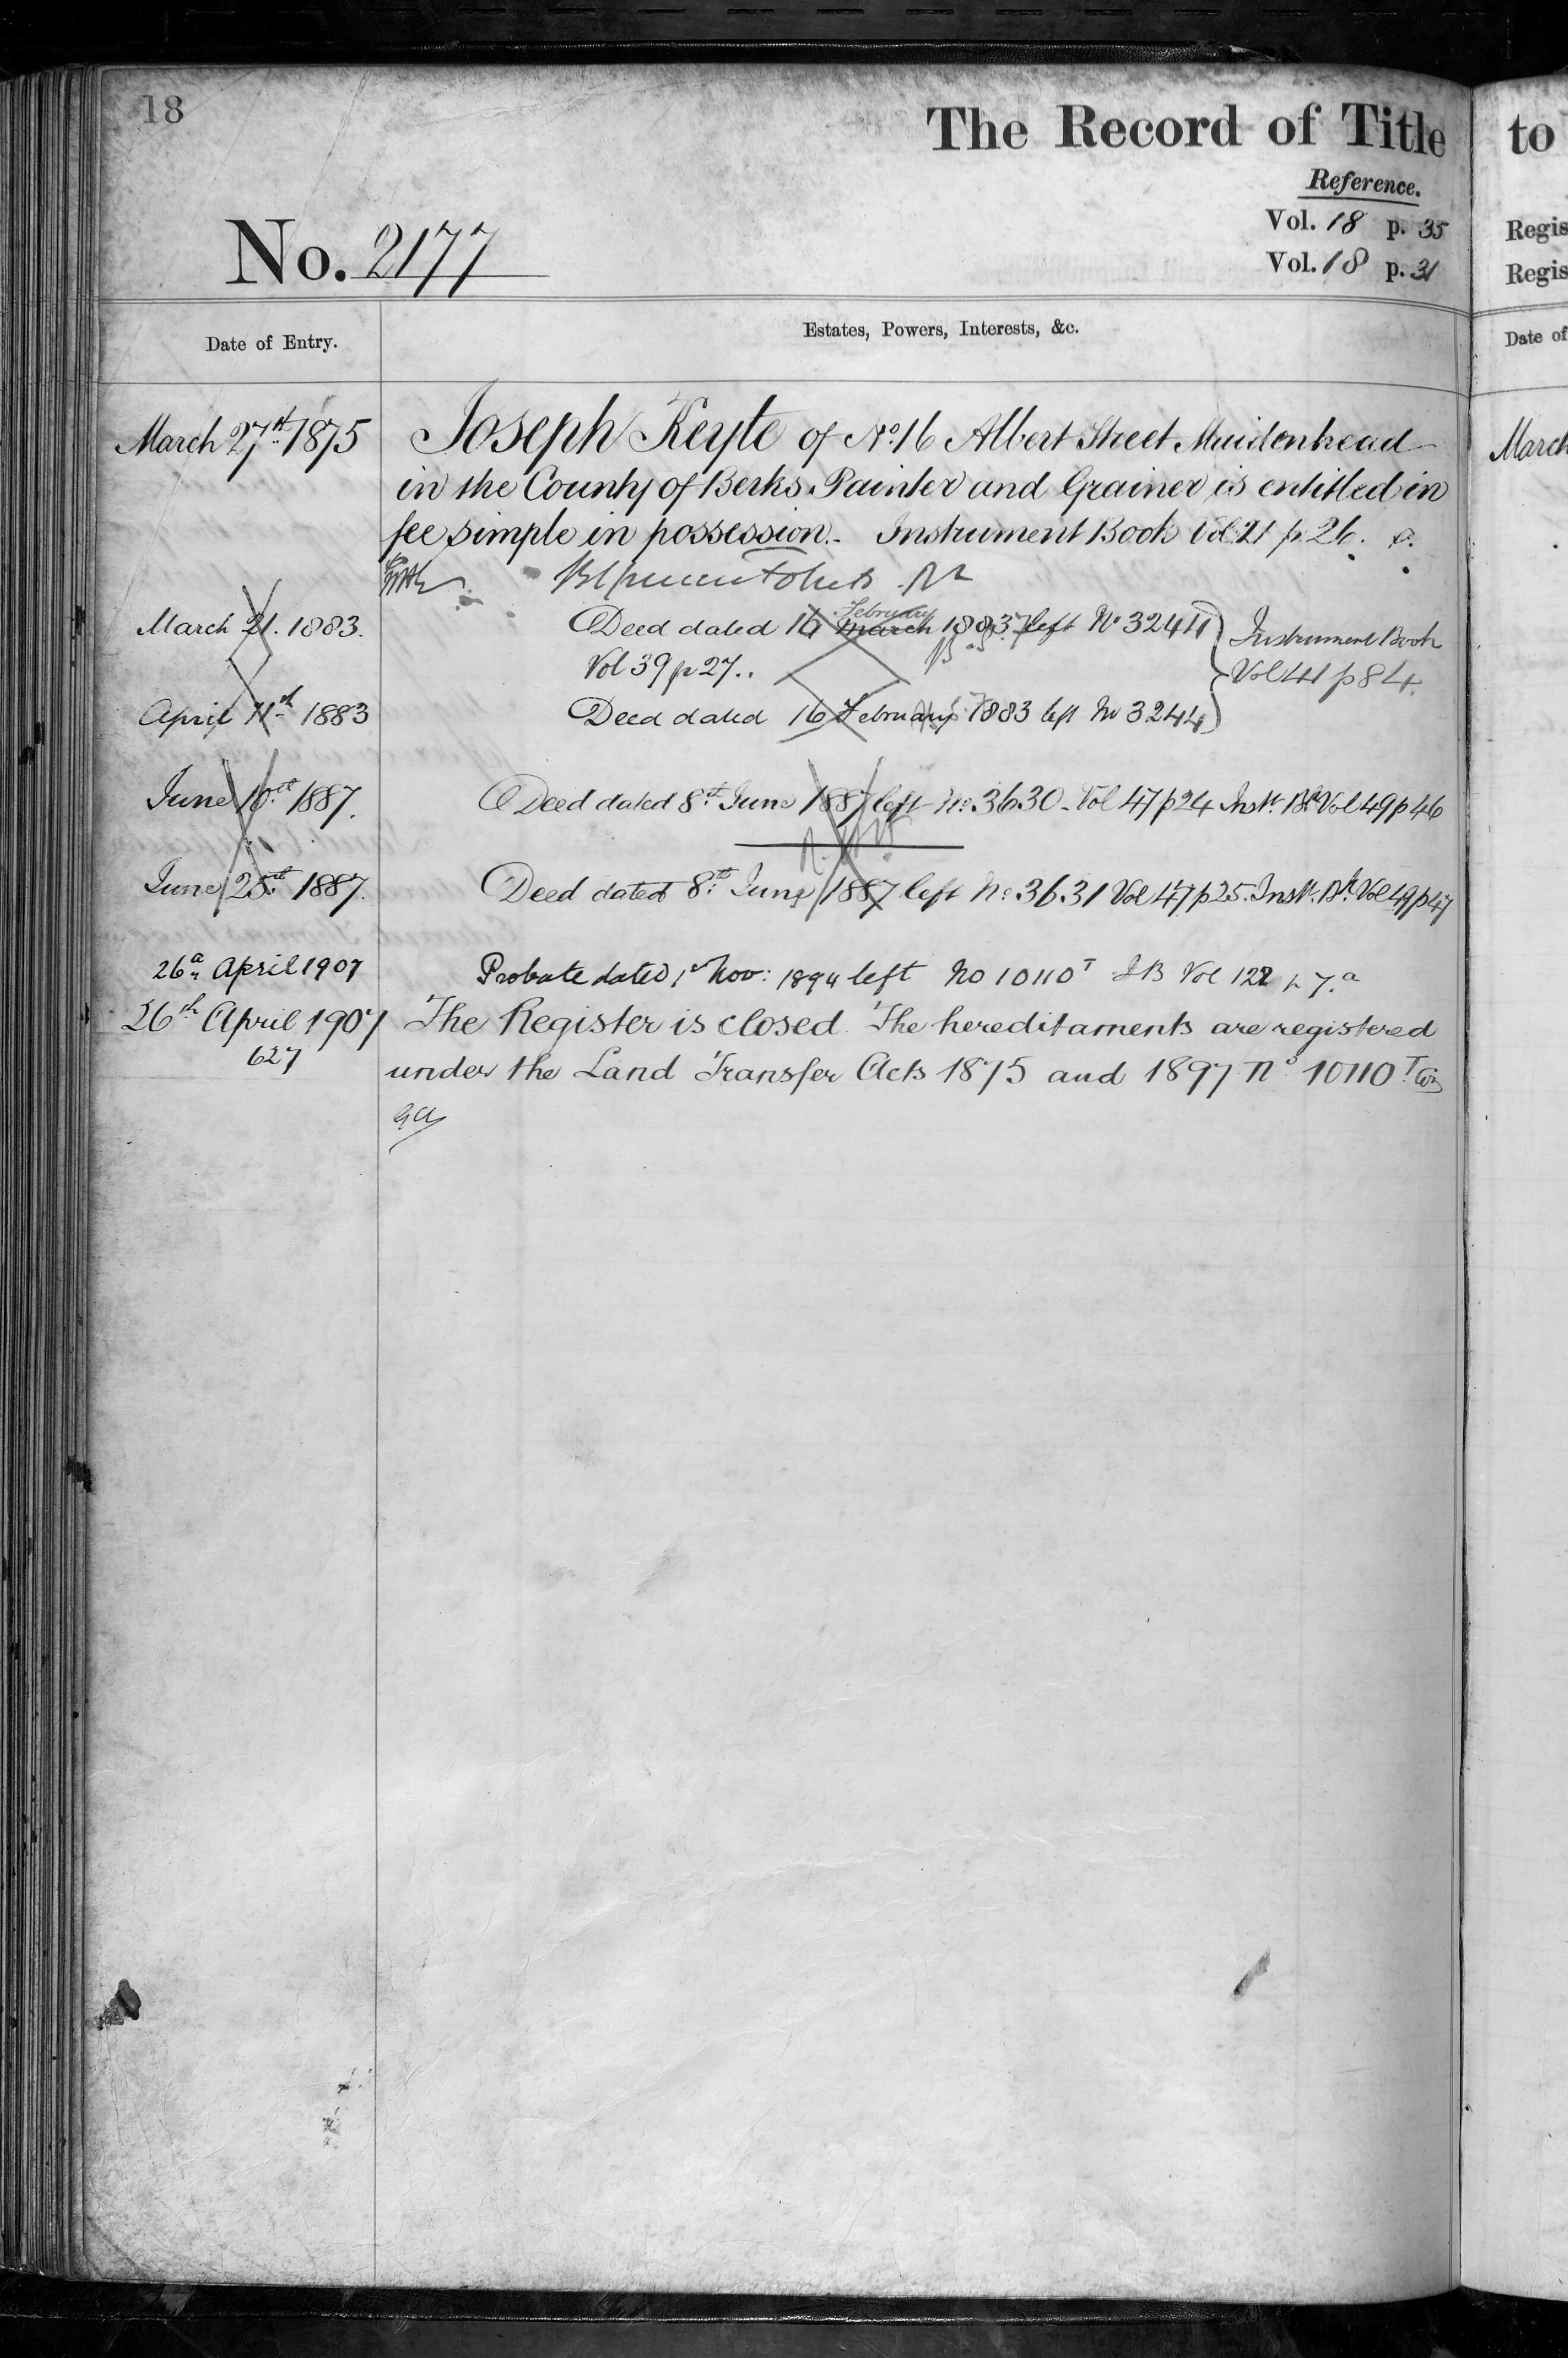 18
The Record of Title
to
Reference.
Vol. 18 p. 35
Vol. 18 p. 31
Regis
Regis
No. 2177
Date of Entry.
Estates, Powers, Interests, &c.
Date of
March 27th 1875
Joseph Keyte of No. 16 Albert Street Maidenhead
March
in the County of Berks. Painter and Grainer is entitled in
fee simple in possession.- Instrument Book Vol: 21 p. 26.
March 21. 1883.
February
Deed dated 16 March 1883 left No 3244
Instrument Book
Vol 39 p 27..
Vol 41 p 84.
April 11th 1883
Deed dated 16 February 1883 left No 3244
June 10th 1887.
Deed dated 8th June 1887 left No. 3630 - Vol 47 p 24 Inst. Bk Vol 49 p 46
June 28th 1887.
Deed dated 8th June 1887 left No. 3631 Vol 47 p 25. Inst. Bk. Vol 49 p 47
26 April 1907
Probate dated 1st Nov: 1894 left No 10110T IB Vol 122 p 7.a
26th April 1907
The Register is closed. The hereditaments are registered
627
under the Land Transfer Acts 1875 and 1897 No 10110T